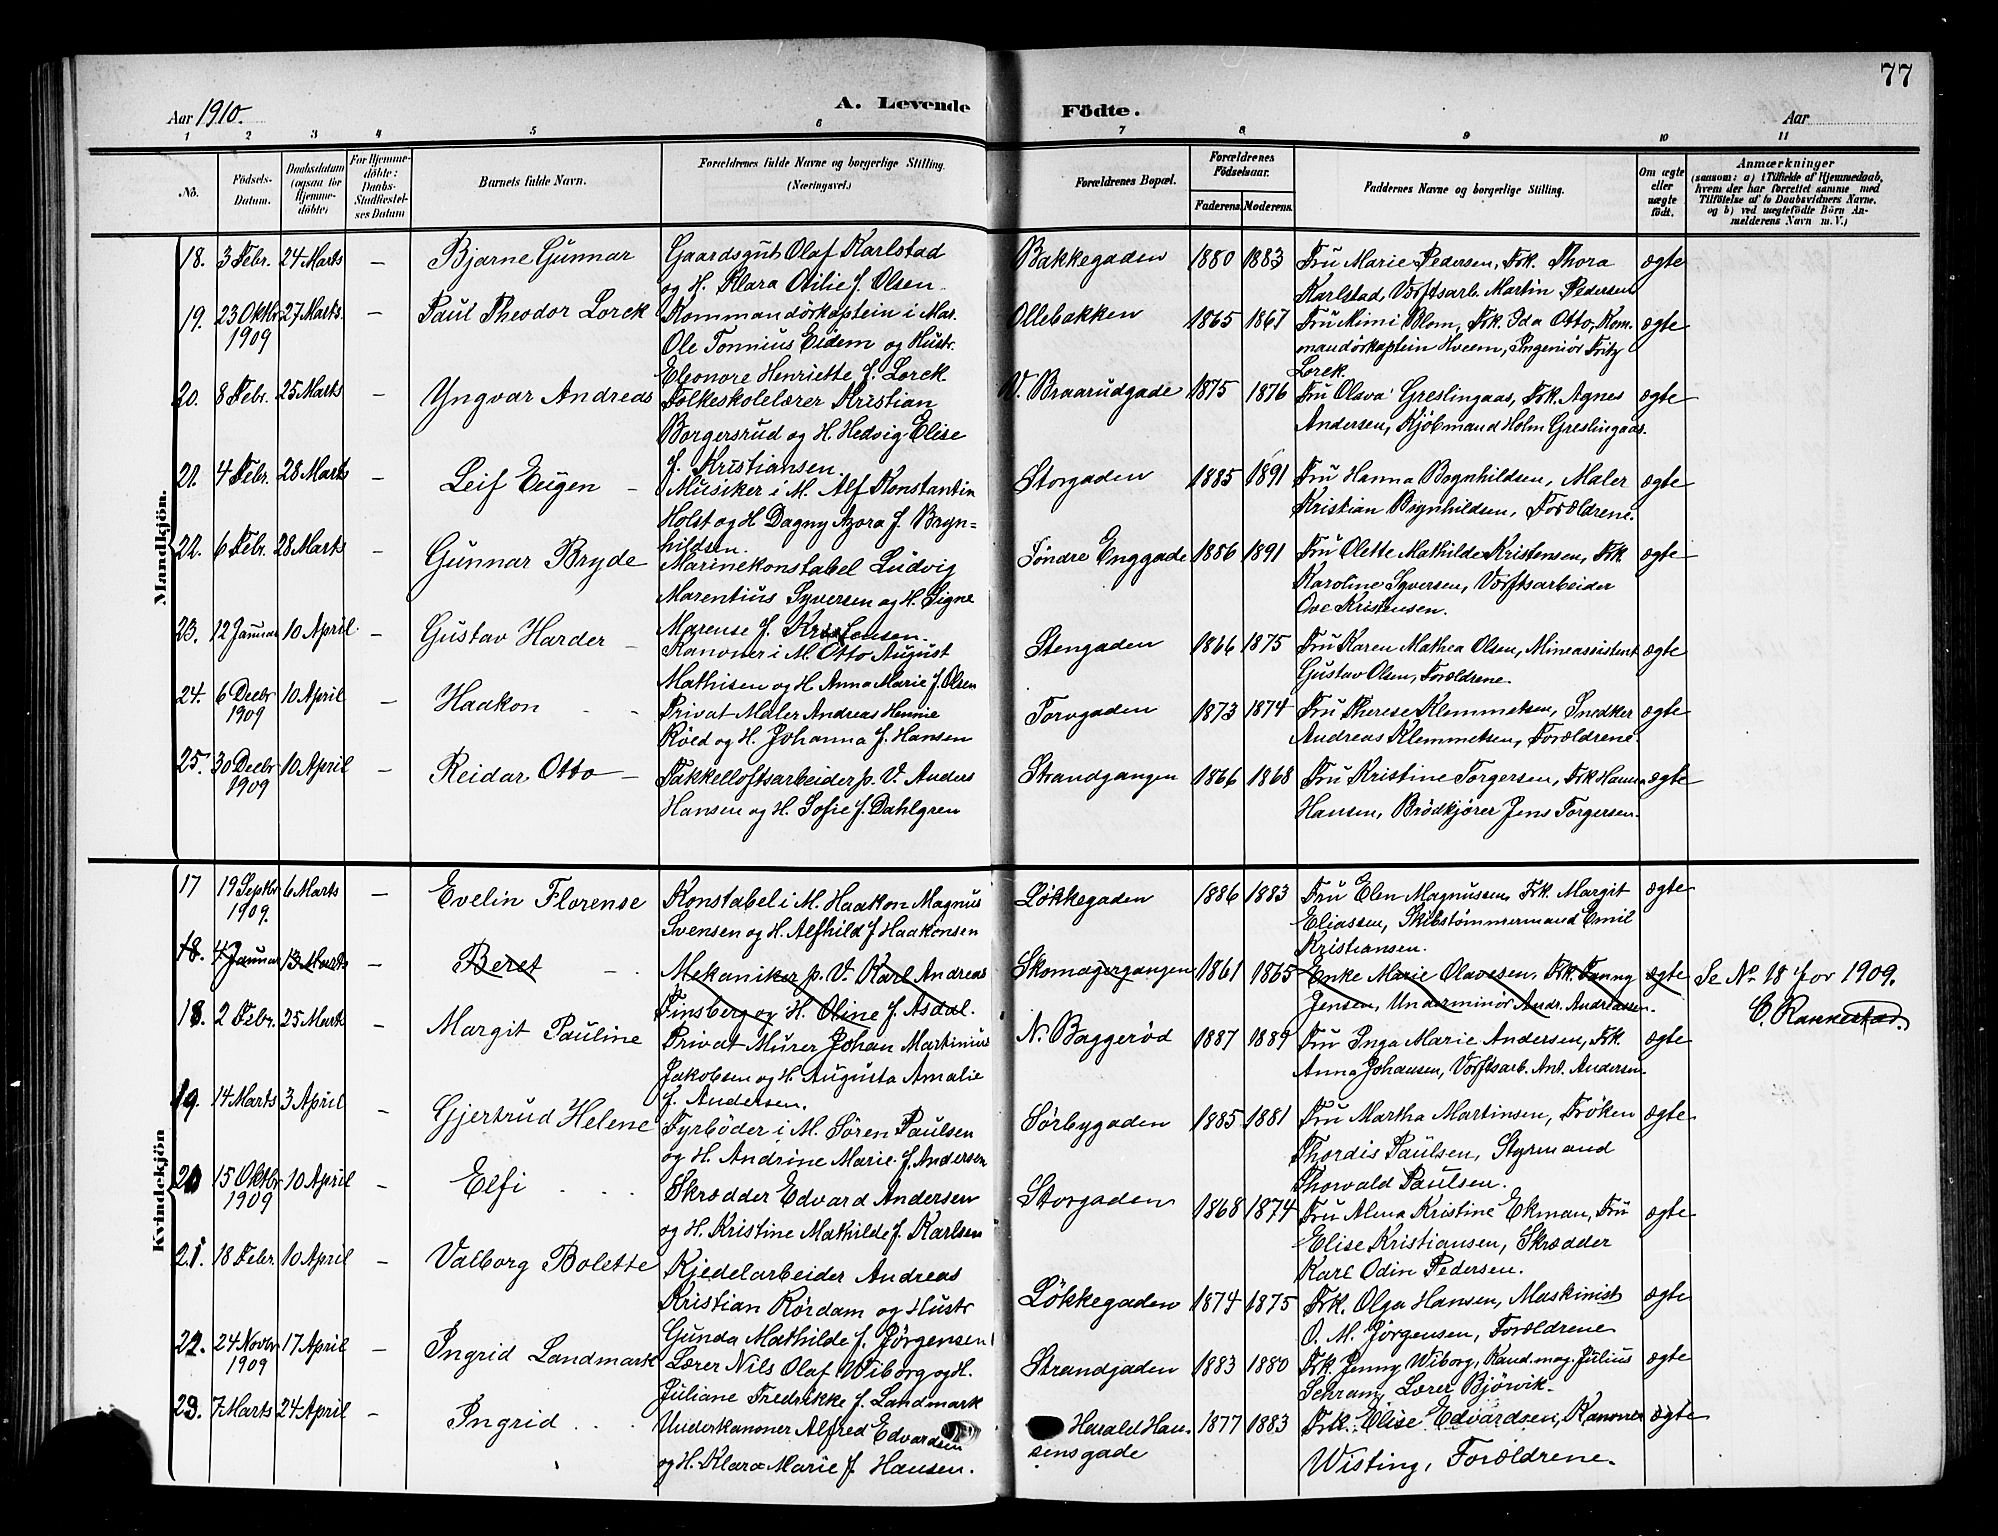 77
Aar 1910.
A. Levende Födte.
Aar
1 2 3 4 5 6 7 8 9 10 11
No.
Födsels-Datum.
Daabsdatum (ogsaa for Hjemmedöbte)
For Hjemmedöbte: Daabs-Stadfæstelses Datum
Barnets fulde Navn.
Forældrenes fulde Navne og borgerlige Stilling. (Næringsvei.)
Forældrenes Bopæl.
Forældrenes Födselsaar.
Faderens. Moderens.
Faddernes Navne og borgerlige Stilling.
Om ægte eller uægte födt.
Anmærkninger
(saasom: a) i Tilfælde af Hjemmedaab, hvem der har forrettet samme med Tilföielse af to Daabsvidners Navne, og b) ved uægtefödte Börn Anmelderens Navn m. V.)
Mandkjön.
18. 3 Febr. 24 Marts – Bjarne Gunnar Gaardsgut Olaf Karlstad Bakkegaden 1880 1883 Fru Marie Pedersen, Frk. Thora ægte
og H. Klara Otilie f. Olsen. Karlstad, Værftsarb. Martin Pedersen
19. 23 Oktbr 27 Marts. – Paul Theodor Lorck Kommandörkaptein i Mar. Ollebakken 1865 1867 Fru Mimi Blom, Frk. Ida Otto, Kom- ægte
1909 Ole Tonnius Eidem og Hustr. mandörkaptein Hveem, Ingeniör Fritz
Eleonore Henriette f. Lorck. Lorck.
20. 8 Febr. 25 Marts – Yngvar Andreas Folkeskolelærer Kristian V. Braarudgade 1875 1876 Fru Olava Greslingaas, Frk. Agnes ægte
Borgersrud og H. Hedvig Elise Andersen, Kjöbmand Holm Greslingaas.
f. Kristiansen.
21. 4 Febr. 28 Marts – Leif Eugen – Musiker i M. Alf Konstantin Storgaden 1885 1891 Fru Hanna Bognhildsen, Maler ægte
Holst og H Dagny Azora f. Bryn- Kristian Brynhildsen, Forældrene.
hildsen.
22. 6 Febr. 28 Marts – Gunnar Bryde Marinekonstabel Ludvig Söndre Enggade 1886 1891 Fru Olette Mathilde Kristensen, Frk. ægte
Marentius Syversen og H. Signe Karoline Syversen, Værftsarbeider
Marense f. Kristensen. Ove Kristensen.
23. 12 Januar 10 April. – Gustav Harder – Kanoner i M. Otto August Stengaden 1866 1875 Fru Karen Mathea Olsen, Mineassistent ægte
Mathisen og H Anna Marie f. Olsen Gustav Olsen, Forældrene.
24. 6 Decbr 10 April – Haakon Privat Maler Andreas Hennie Torvgaden 1873 1874 Fru Therese Klemmetsen, Snedker ægte
1909 Röed og H. Johanna f. Hansen Andreas Klemmetsen, Forældrene.
25. 30 Decbr 10 April – Reidar Otto – Takkelloftsarbeider p. V. Anders Strandgangen 1866 1868 Fru Kristine Torgersen, Frk Hanna ægte
1909 Hansen og H. Sofie f. Dahlgren Hansen, Brödkjörer Jens Torgersen.
Kvindekjön
17 19 Septbr 6 Marts – Evelin Florense Konstabel i M. Haakon Magnus Løkkegaden 1886 1883 Fru Elen Magnussen, Frk. Margit ægte
1909. Svensen og H. Alfhild f Haakonsen Eliassen, Skibstømmermand Emil
Kristiansen.
18. 4 Januar 13 Marts – Beret Mekaniker p. V. Karl Andreas Skomagergangen 1861 1865 Enke Marie Olavesen, Frk. Fanny ægte Se No. 18 for 1909.
Finsberg og H. Oline f. Asdal. Jensen, Underminör Andr. Andreassen. C. Rakkestad.
18. 2 Febr. 25 Mart – Margit Pauline Privat Murer Johan Martinius N. Baggerød 1887 1889 Fru Inga Marie Andersen, Frk ægte
Jakobsen og H. Augusta Amalie Anna Johansen, Værftsarb. Ant. Andersen.
f. Andersen.
19. 14 Marts 3 April – Gjertrud Helene Fyrböder i M. Sören Paulsen Sørbygaden 1885 1881 Fru Martha Martinsen, Fröken ægte
og H. Andrine Marie f. Andersen Thordis Paulsen, Styrmand
Thorvald Paulsen.
20 15 Oktbr 10 April – Elfi Skrædder Edvard Andersen Storgaden 1868 1874 Fru Alma Kristine Ekman, Fru ægte
1909 og H. Kristine Mathilde f. Karlsen Elise Kristiansen, Skrædder
Karl Odin Pedersen.
21. 18 Febr. 10 April – Valborg Bolette Kjedelarbeider Andreas Løkkegaden 1874 1875 Frk. Olga Hansen, Maskinist ægte
Kristian Rördam og Hustr O. M. Jörgensen, Forældrene
Gunda Mathilde f. Jörgensen
22. 24 Novbr 17 April – Ingrid Landmark Lærer Nils Olaf Wiborg og H. Strandgaden 1883 1880 Frk Jenny Wiborg, Kand. mag. Julius ægte
1909 Juliane Fredrikke f. Landmark Schram, Lærer Björvik.
23. 7 Marts 24 April – Ingrid Underkanoner Alfred Edvardsen Harald Han- 1877 1883 Frk. Elise Edvardsen, Kanoner ægte
og H. Klara Marie f. Hansen. sensgade Wisting, Forældrene.